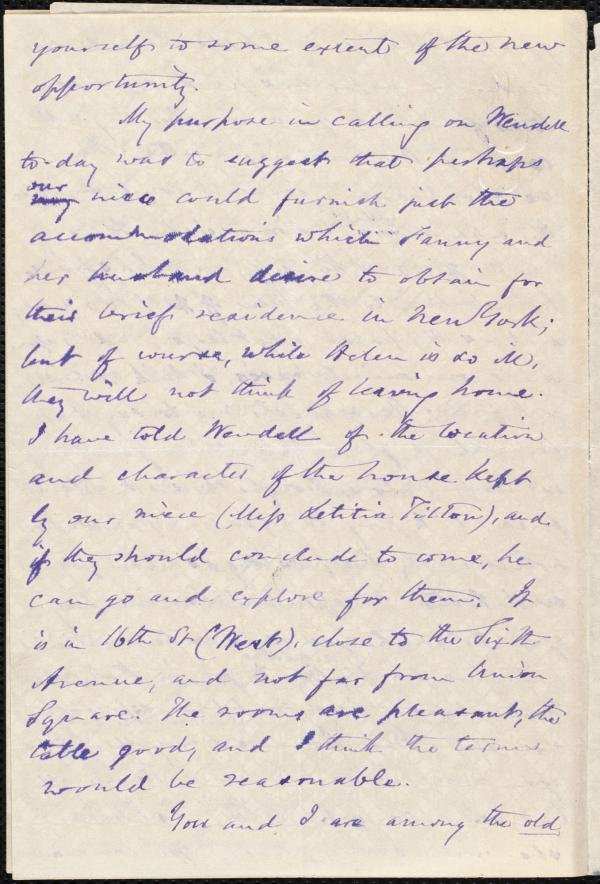 yourself to some extent of the new
opportunity.
My purpose in calling on Wendell
to-day was to suggest that perhaps
our
my niece could furnish just the
accommodations which Fanny and
her husband desire to obtain for
their brief residence in New York;
but of course, while Helen is so ill,
they will not think of leaving home.
I have told Wendell of the location
and character of the house kept
by our niece (Miss Letitia Tilton), and
if they should conclude to come, he
can go and explore for them. It
is in 16th St (West), close to the Sixth
Avenue, and not far from Union
Square. The rooms are pleasant, the
table good, and I think the terms
would be reasonable.
You and I are among the old